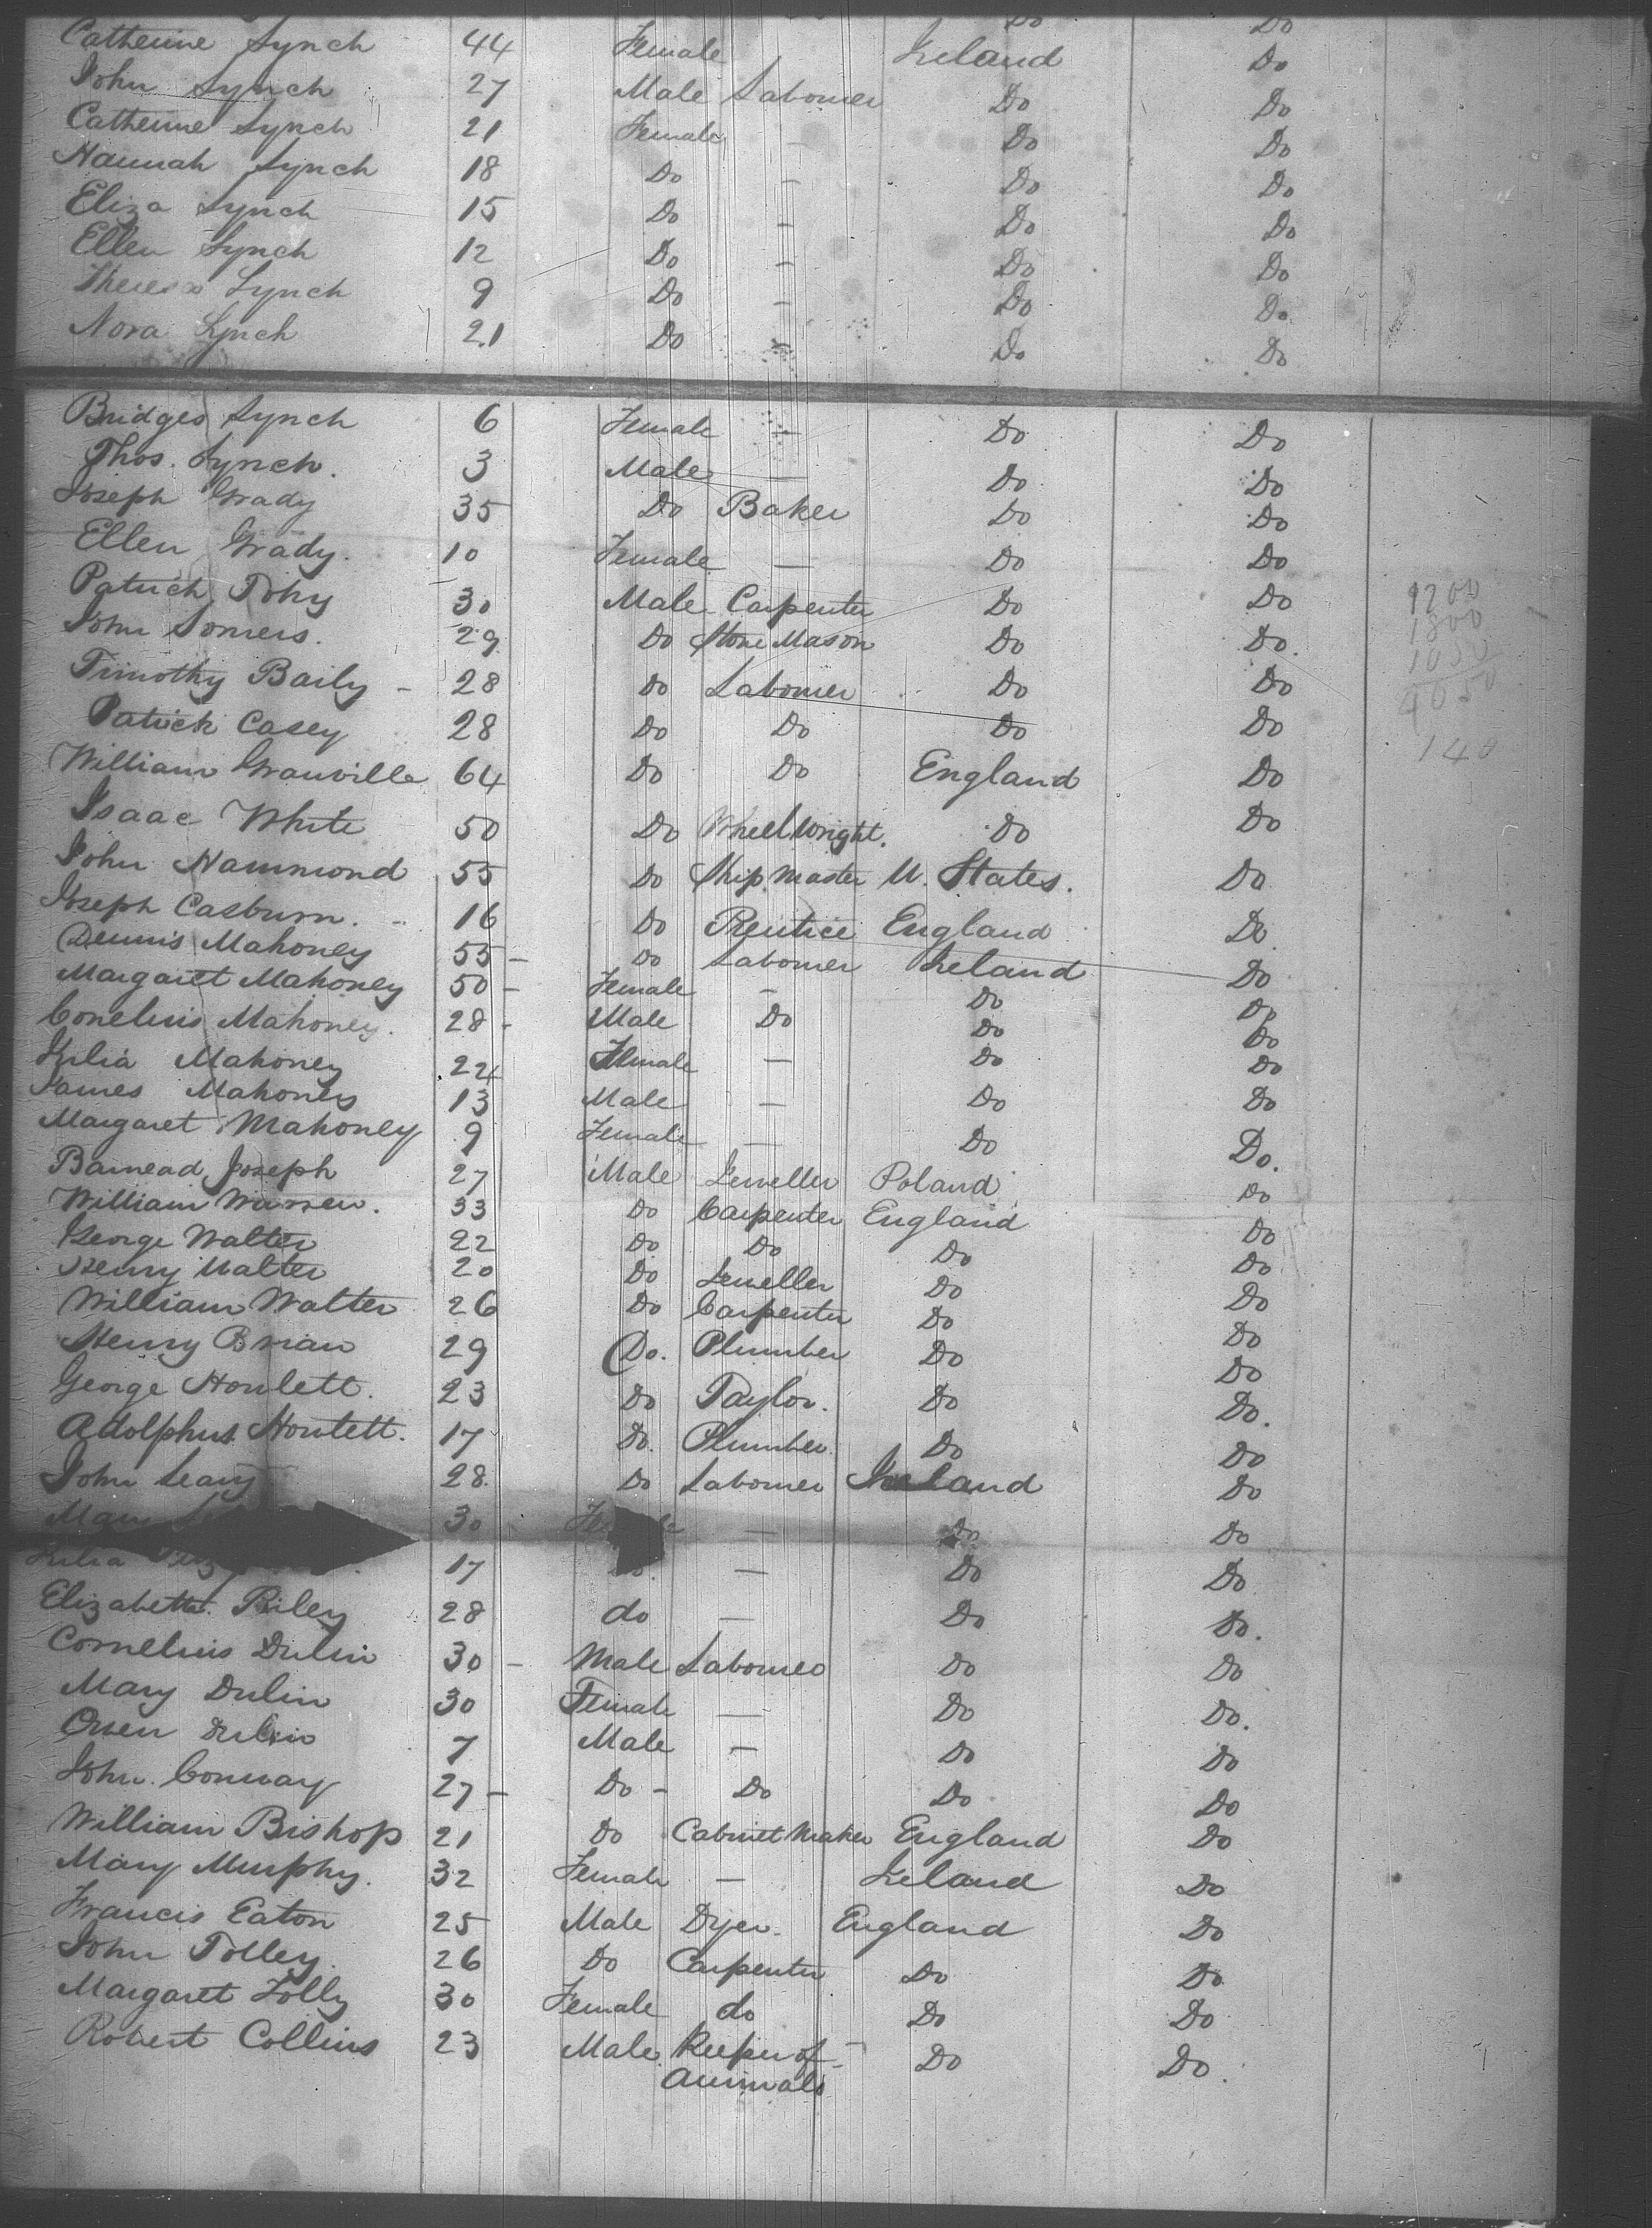 Do Do
Catherine Lynch 44 Female Ireland Do
John Lynch 27 Male Labourer Do Do
Catherine Lynch 21 Female - Do Do
Hannah Lynch 18 Do - Do Do
Eliza Lynch 15 Do - Do Do
Ellen Lynch 12 Do - Do Do
Theresa Lynch 9 Do - Do Do
Nora Lynch 21 Do - Do Do
Bridges Lynch 6 Female - Do Do
Thos. Lynch. 3 Male - Do Do
Joseph Grady 35 Do Baker Do Do
Ellen Grady. 10 Female - Do Do
Patrick 30 Male Carpenter Do Do
John Somers. 29 Do Stone Mason Do Do.
Timothy Baily - 28 Do Labourer Do Do
Patrick Casey 28 Do Do Do Do
William Granville 64 Do Do England Do
Isaac White 50 Do Wheelwright. Do Do
John Hammond 55 Do Ship Master U. States. Do
Joseph Casburn. - 16 Do Prentice England Do
Dennis Mahoney 55 - Do Labourer Ireland Do
Margaret Mahoney 50 - Female - Do Do
Conelius Mahoney. 28 - Male Do Do Do
Julia Mahoney 24 Female - Do Do
James Mahoney 13 Male - Do Do
Margaret Mahoney 9 Female - Do Do.
Joseph 27 Male Jeweller Poland Do
William Warren. 33 Do Carpenter England Do
George Walter 22 Do Do Do Do
Henry Walter 20 Do Jeweller Do Do
William Walter 26 Do Carpenter Do Do
Henry Brian 29 Do. Plumber Do Do
George Howlett. 23 Do Taylor. Do Do.
Adolphus Howlett. 17 Do. Plumber Do Do
John Leary 28. Do Labourer Ireland Do
Mary 30 - Do Do
Julia 17 Do. - Do Do
Elizabeth Riley 28 do - Do Do.
Cornelius Dulin 30 - Male Labourer Do Do
Mary Dulin 30 Female - Do Do.
Owen Dulin 7 Male - Do Do
John Conway 27 - Do - Do Do Do
William Bishop 21 Do Cabinet Maker England Do
Mary Murphy. 32 Female - Ireland Do
Francis Eaton 25 Male Dyer. England Do
John Tolley. 26 Do Carpenter Do Do
Margaret Tolly 30 Female do Do Do
Robert Collins 23 Male Keeper of Do Do.
Animals